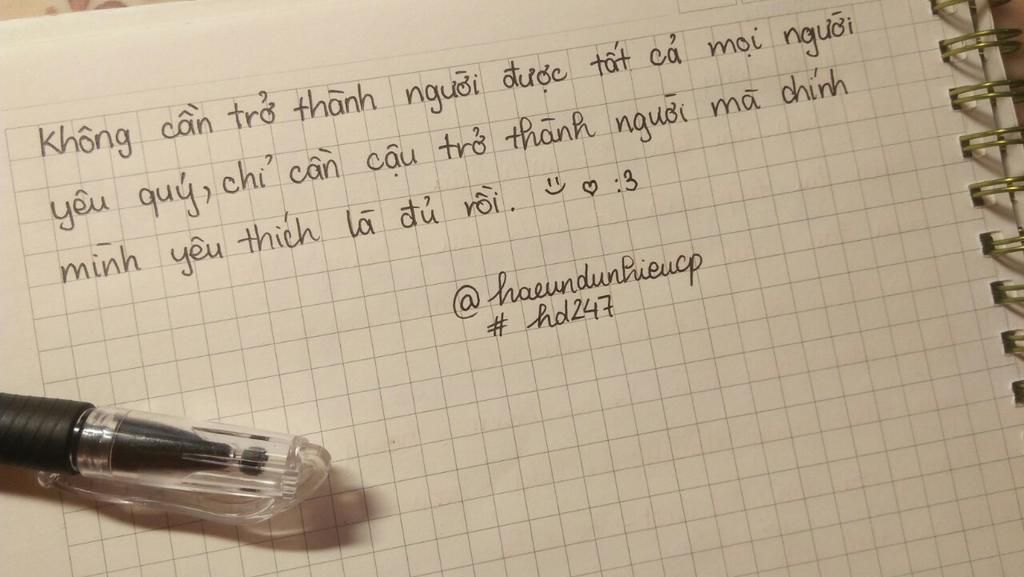 Không cần trở thành người được tất cả mọi người
yêu quý, chỉ cần cậu trở thành người mà chính
mình yêu thích là đủ rồi. :) ♡ :3
@haeundunhieucp
# hd247